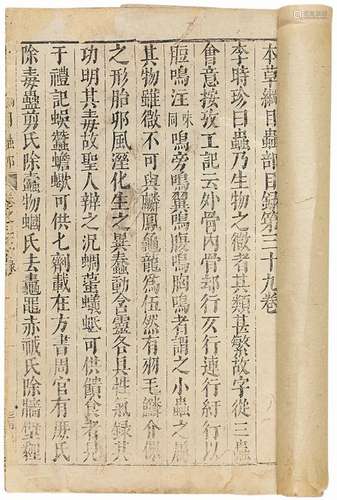 本草綱目蟲部目録第三十九卷
李時珍曰蟲乃生物之微者其類甚繁故字從三蟲
會意按攷工記云外骨內骨郤行仄行連行紆行以
脰鳴注味同鳴旁鳴翼鳴腹鳴胸鳴者謂之小蟲之屬
其物雖微不可與麟鳳龜龍爲伍然有羽毛鱗介倮
之形胎卵風溼化生之異蠢動含靈各具性氣録其
功明其毒故聖人辨之况蜩䘉蟻蚳可供饋食者見
于禮記蜈蠶蟾蠍可供七劑載在方書周官有庶氏
除毒蠱剪氏除蠹物蟈氏去鼃黽赤犮氏除牆壁貍